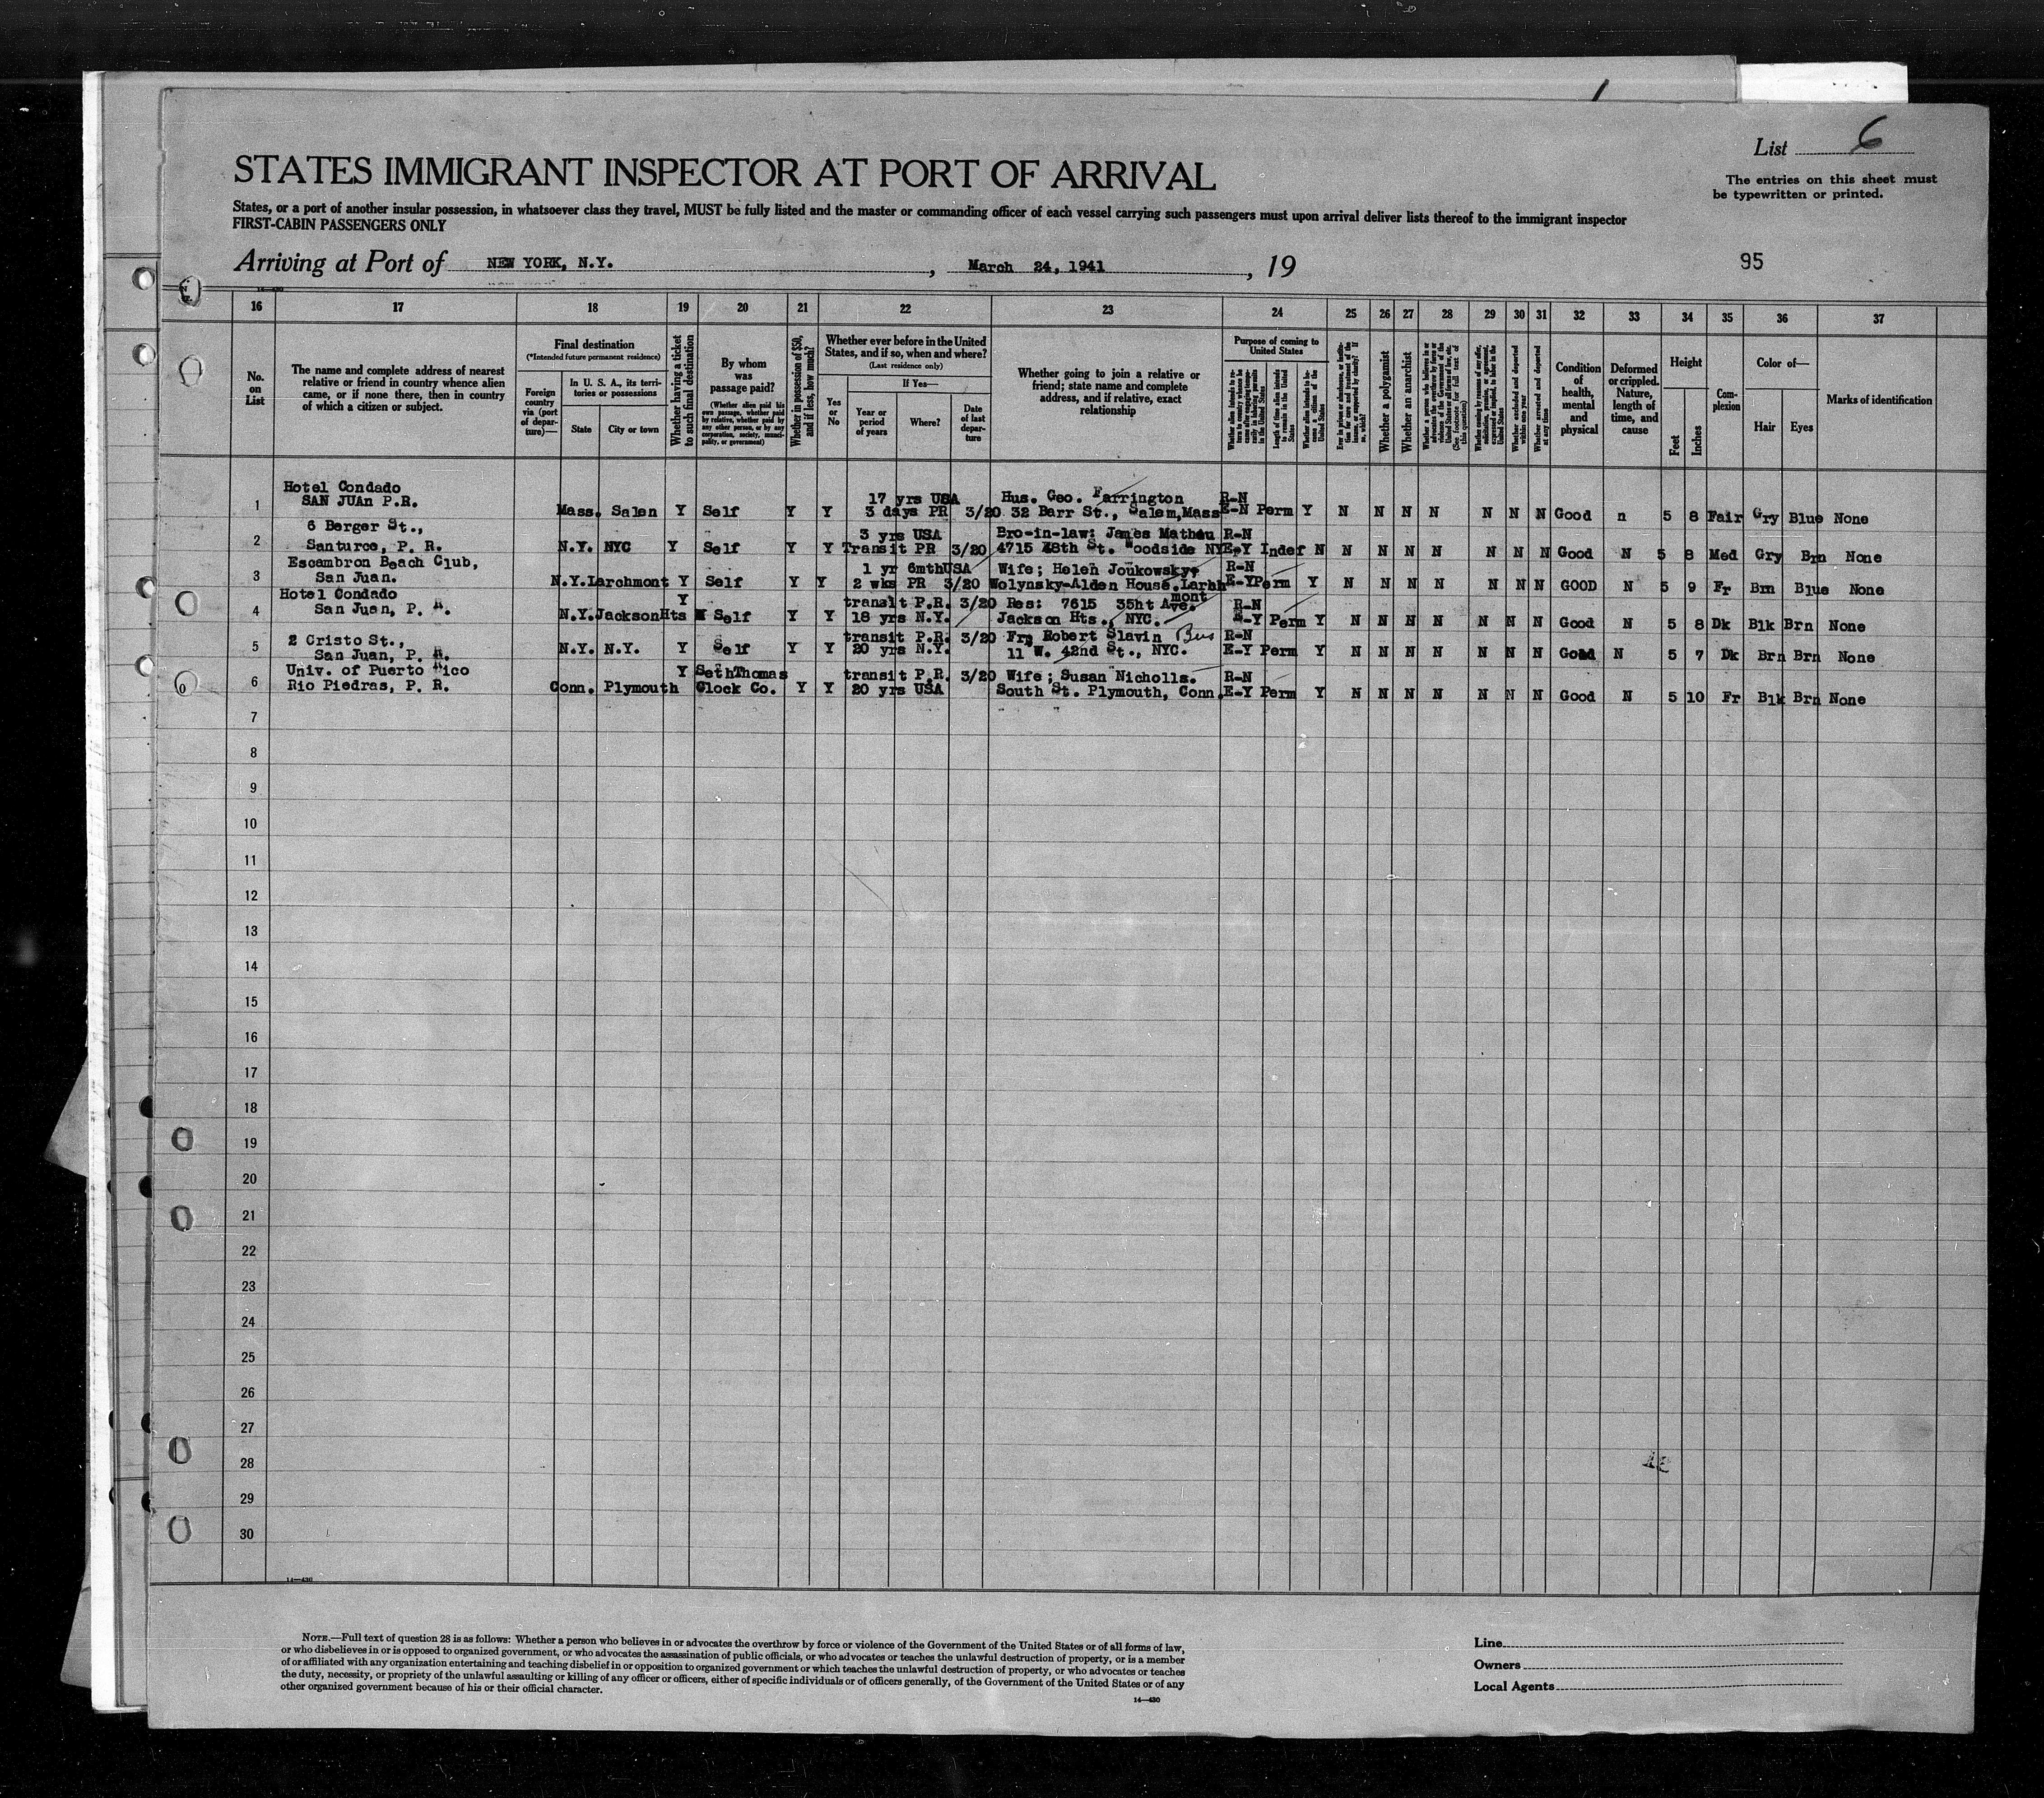 List 6
STATES IMMIGRANT INSPECTOR AT PORT OF ARRIVAL
The entries on this sheet must
be typewritten or printed.
States, or a port of another insular possession, in whatsoever class they travel, MUST be fully listed and the master or commanding officer of each vessel carrying such passengers must upon arrival deliver lists thereof to the immigrant inspector
FIRST-CABIN PASSENGERS ONLY
Arriving at Port of NEW YORK, N.Y. , March 24, 1941 , 19
95
14—430
16 17 18 19 20 21 22 23 24 25 26 27 28 29 30 31 32 33 34 35 36 37
No.
on
List
The name and complete address of nearest
relative or friend in country whence alien
came, or if none there, then in country
of which a citizen or subject.
Final destination
(*Intended future permanent residence)
Foreign
country
via (port
of depar-
ture)—
In U. S. A., its terri-
tories or possessions
State
City or town
Whether having a ticket
to such final destination
By whom
was
passage paid?
(Whether alien paid his
own passage, whether paid
by relative, whether paid by
any other person, or by any
corporation, society, munici-
pality, or government)
Whether in possession of $50,
and if less, how much?
Whether ever before in the United
States, and if so, when and where?
(Last residence only)
Yes
or
No
If Yes—
Year or
period
of years
Where?
Date
of last
depar-
ture
Whether going to join a relative or
friend; state name and complete
address, and if relative, exact
relationship
Purpose of coming to
United States
Length of time alien intends
to remain in the United
States
Whether alien intends to be-
come a citizen of the
United States
Whether a polygamist
Whether an anarchist
(See footnote for full text of
this question)
Whether arrested and deported
at any time
Condition
of
health,
mental
and
physical
Deformed
or crippled.
Nature,
length of
time, and
cause
Height
Feet
Inches
Com-
plexion
Color of—
Hair
Eyes
Marks of identification
Hotel Condado 17 yrs USA Hus. Geo. Farrington R-N
1 SAN JUAn P.R. Mass. Salen Y Self Y Y 3 days PR 3/20 32 Barr St., Salem,Mass E-N Perm Y N N N N N N N Good n 5 8 Fair Gry Blue None
6 Berger St., 3 yrs USA Bro-in-law: James Matheu R-N
2 Santurce, P. R. N.Y. NYC Y Self Y Y Transit PR 3/20 4715 48th St. Woodside NY E-Y Indef N N N N N N N N Good N 5 8 Med Gry Brn None
Escambron Beach Club, 1 yr 6mthUSA Wife; Helen Joukowsky, R-N
3 San Juan. N.Y. Larchmont Y Self Y Y 2 wks PR 3/20 Wolynsky-Alden House, Larhh mont E-Y Perm Y N N N N N N N GOOD N 5 9 Fr Brn Blue None
Hotel Condado Y transit P.R. 3/20 Res: 7615 35ht Ave. R-N
4 San Juan, P. R. N.Y. JacksonHts Self Y Y 18 yrs N.Y. Jackson Hts., NYC. E-Y Perm Y N N N N N N N Good N 5 8 Dk Blk Brn None
2 Cristo St., transit P.R. 3/20 Fr; Robert Slavin Bus R-N
5 San Juan, P. R. N.Y. N.Y. Y Self Y Y 20 yrs N.Y. 11 W. 42nd St., NYC. E-Y Perm Y N N N N N N N Good N 5 7 Dk Brn Brn None
Univ. of Puerto Rico Y SethThomas transit P.R. 3/20 Wife; Susan Nicholls. R-N
6 Rio Piedras, P. R. Conn. Plymouth Clock Co. Y Y 20 yrs USA South St. Plymouth, Conn. E-Y Perm Y N N N N N N N Good N 5 10 Fr Blk Brn None
7
8
9
10
11
12
13
14
15
16
17
18
19
20
21
22
23
24
25
26
27
28
29
30
14—430
NOTE.—Full text of question 28 is as follows: Whether a person who believes in or advocates the overthrow by force or violence of the Government of the United States or of all forms of law,
or who disbelieves in or is opposed to organized government, or who advocates the assassination of public officials, or who advocates or teaches the unlawful destruction of property, or is a member
of or affiliated with any organization entertaining and teaching disbelief in or opposition to organized government or which teaches the unlawful destruction of property, or who advocates or teaches
the duty, necessity, or propriety of the unlawful assaulting or killing of any officer or officers, either of specific individuals or of officers generally, of the Government of the United States or of any
other organized government because of his or their official character.
14—430
Line
Owners
Local Agents